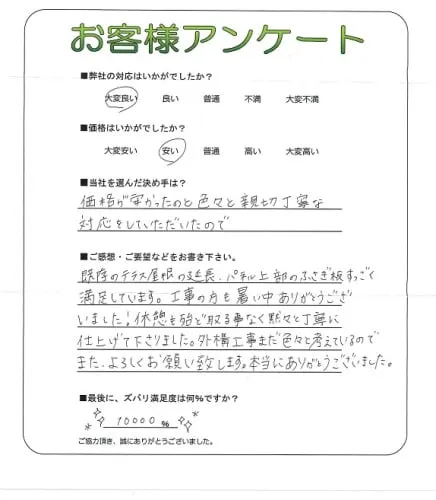 お客様アンケート
■弊社の対応はいかがでしたか？
大変良い 良い 普通 不満 大変不満
■価格はいかがでしたか？
大変安い 安い 普通 高い 大変高い
■当社を選んだ決め手は？
価格が安かったのと色々と親切丁寧な
対応をしていただいたので
■ご感想・ご要望などをお書き下さい。
既存のテラス屋根の延長、パネル上部のふさぎ板すっごく
満足しています。工事の方も暑い中ありがとうござ
いました！休憩も殆ど取る事なく黙々と丁寧に
仕上げて下さりました。外構工事まだ色々と考えているので
また、よろしくお願い致します。本当にありがとうございました。
■最後に、ズバリ満足度は何%ですか？
10000 %
ご協力頂き、誠にありがとうございました。